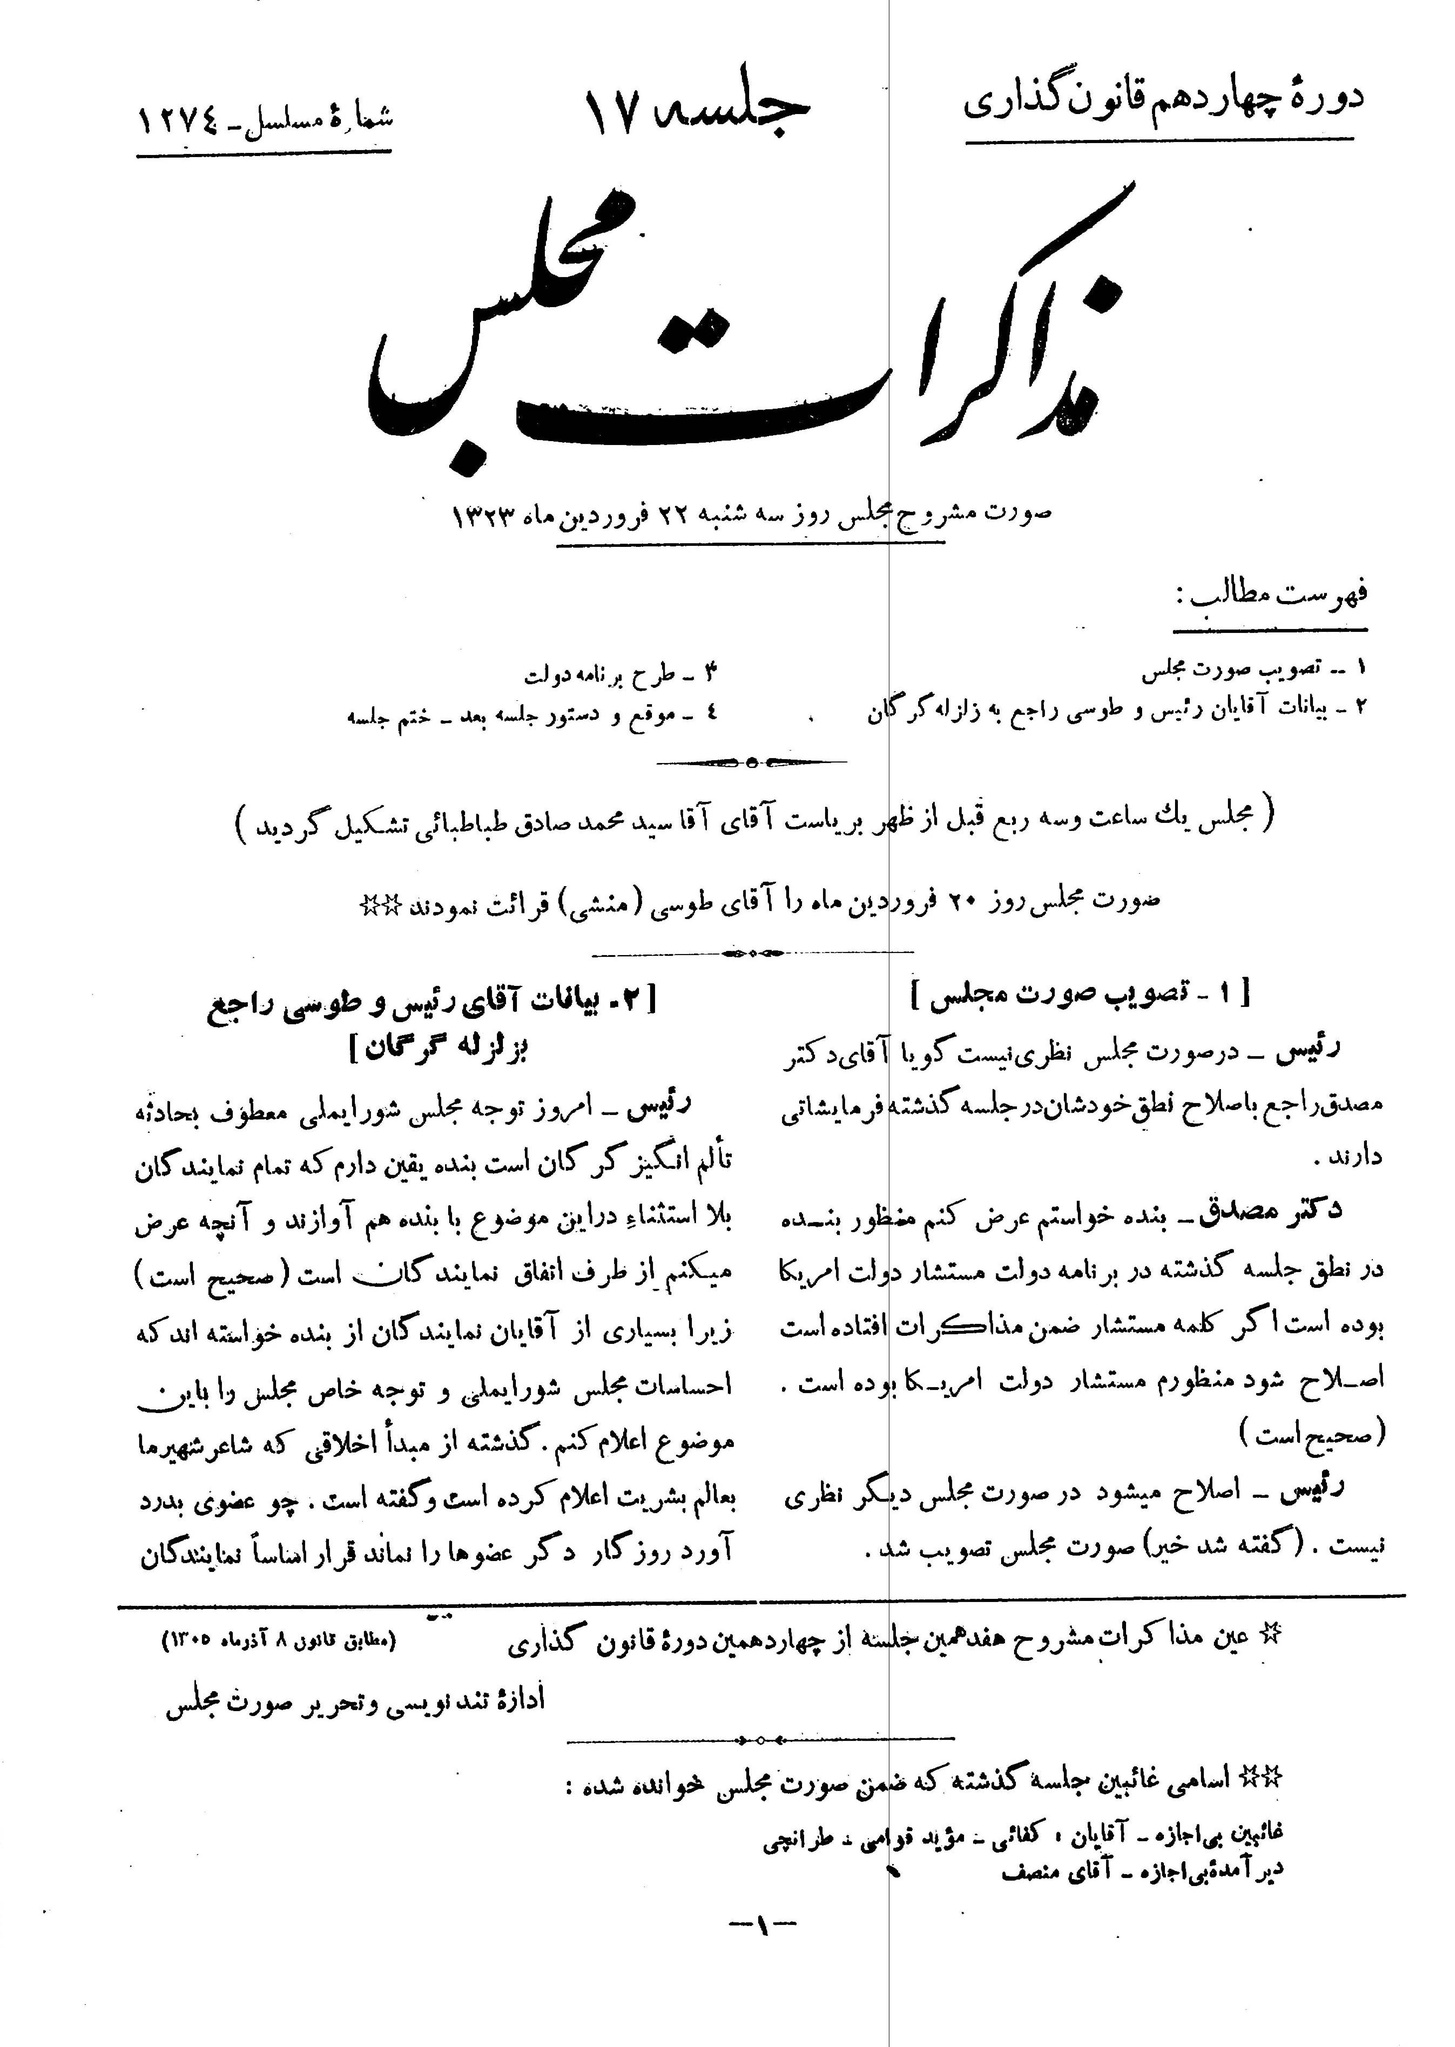 دورهٔ چهاردهم قانون‌گذاری
جلسه ۱۷
شمارهٔ مسلسل ـ ۱۲۷۴
مذاکرات مجلس
صورت مشروح مجلس روز سه شنبه ۲۲ فروردین ماه ۱۳۲۳
فهرست مطالب :
۱ ــ تصویب صورت مجلس
۲ ـ بیانات آقایان رئیس و طوسی راجع به زلزله گرگان
۳ ـ طرح برنامه دولت
۴ ـ موقع و دستور جلسه بعد ـ ختم جلسه
( مجلس یك ساعت وسه ربع قبل از ظهر بریاست آقای آقا سید محمد صادق طباطبائی تشکیل گردید )
صورت مجلس روز ۲۰ فروردین ماه را آقای طوسی (منشی) قرائت نمودند ☆☆
[ ۱ - تصویب صورت مجلس ]
رئیس ـ درصورت مجلس نظری نیست گویا آقای دکتر
مصدق راجع باصلاح نطق خودشان در جلسه گذشته فرمایشاتی
دارند .
دکتر مصدق ـ بنده خواستم عرض کنم منظور بنـده
در نطق جلسه گذشته در برنامه دولت مستشار دولت امریکا
بوده است اگر کلمه مستشار ضمن مذاکرات افتاده است
اصـلاح شود منظورم مستشار دولت امریـکا بوده است .
(صحیح است)
رئیس ـ اصلاح میشود در صورت مجلس دیگر نظری
نیست . (گفته شد خیر) صورت مجلس تصویب شد .
[ ۲ - بیانات آقای رئیس و طوسی راجع
بزلزله گرگان ]
رئیس ـ امروز توجه مجلس شورایملی معطوف بحادثه
تألم انگیز گرگان است بنده یقین دارم که تمام نمایندگان
بلا استثناء دراین موضوع با بنده هم آوازند و آنچه عرض
میکنم از طرف اتفاق نمایندگان است (صحیح است)
زیرا بسیاری از آقایان نمایندگان از بنده خواسته اند که
احساسات مجلس شورایملی و توجه خاص مجلس را باین
موضوع اعلام کنم . گذشته از مبدأ اخلاقی که شاعر شهیر ما
بعالم بشریت اعلام کرده است وگفته است . چو عضوی بدرد
آورد روزگار دگر عضوها را نماند قرار اساساً نمایندگان
☆ عین مذاکرات مشروح هفدهمین جلسه از چهاردهمین دورهٔ قانون گذاری
(مطابق قانون ۸ آذرماه ۱۳۰۵)
ادارهٔ تند نویسی و تحریر صورت مجلس
☆☆ اسامی غائبین جلسه گذشته که ضمن صورت مجلس خوانده شده :
غائبین بی‌اجازه ـ آقایان : کفائی ـ مؤید قوامی ـ طرانچی
دیر آمدهٔ بی‌اجازه ـ آقای منصف
—۱—